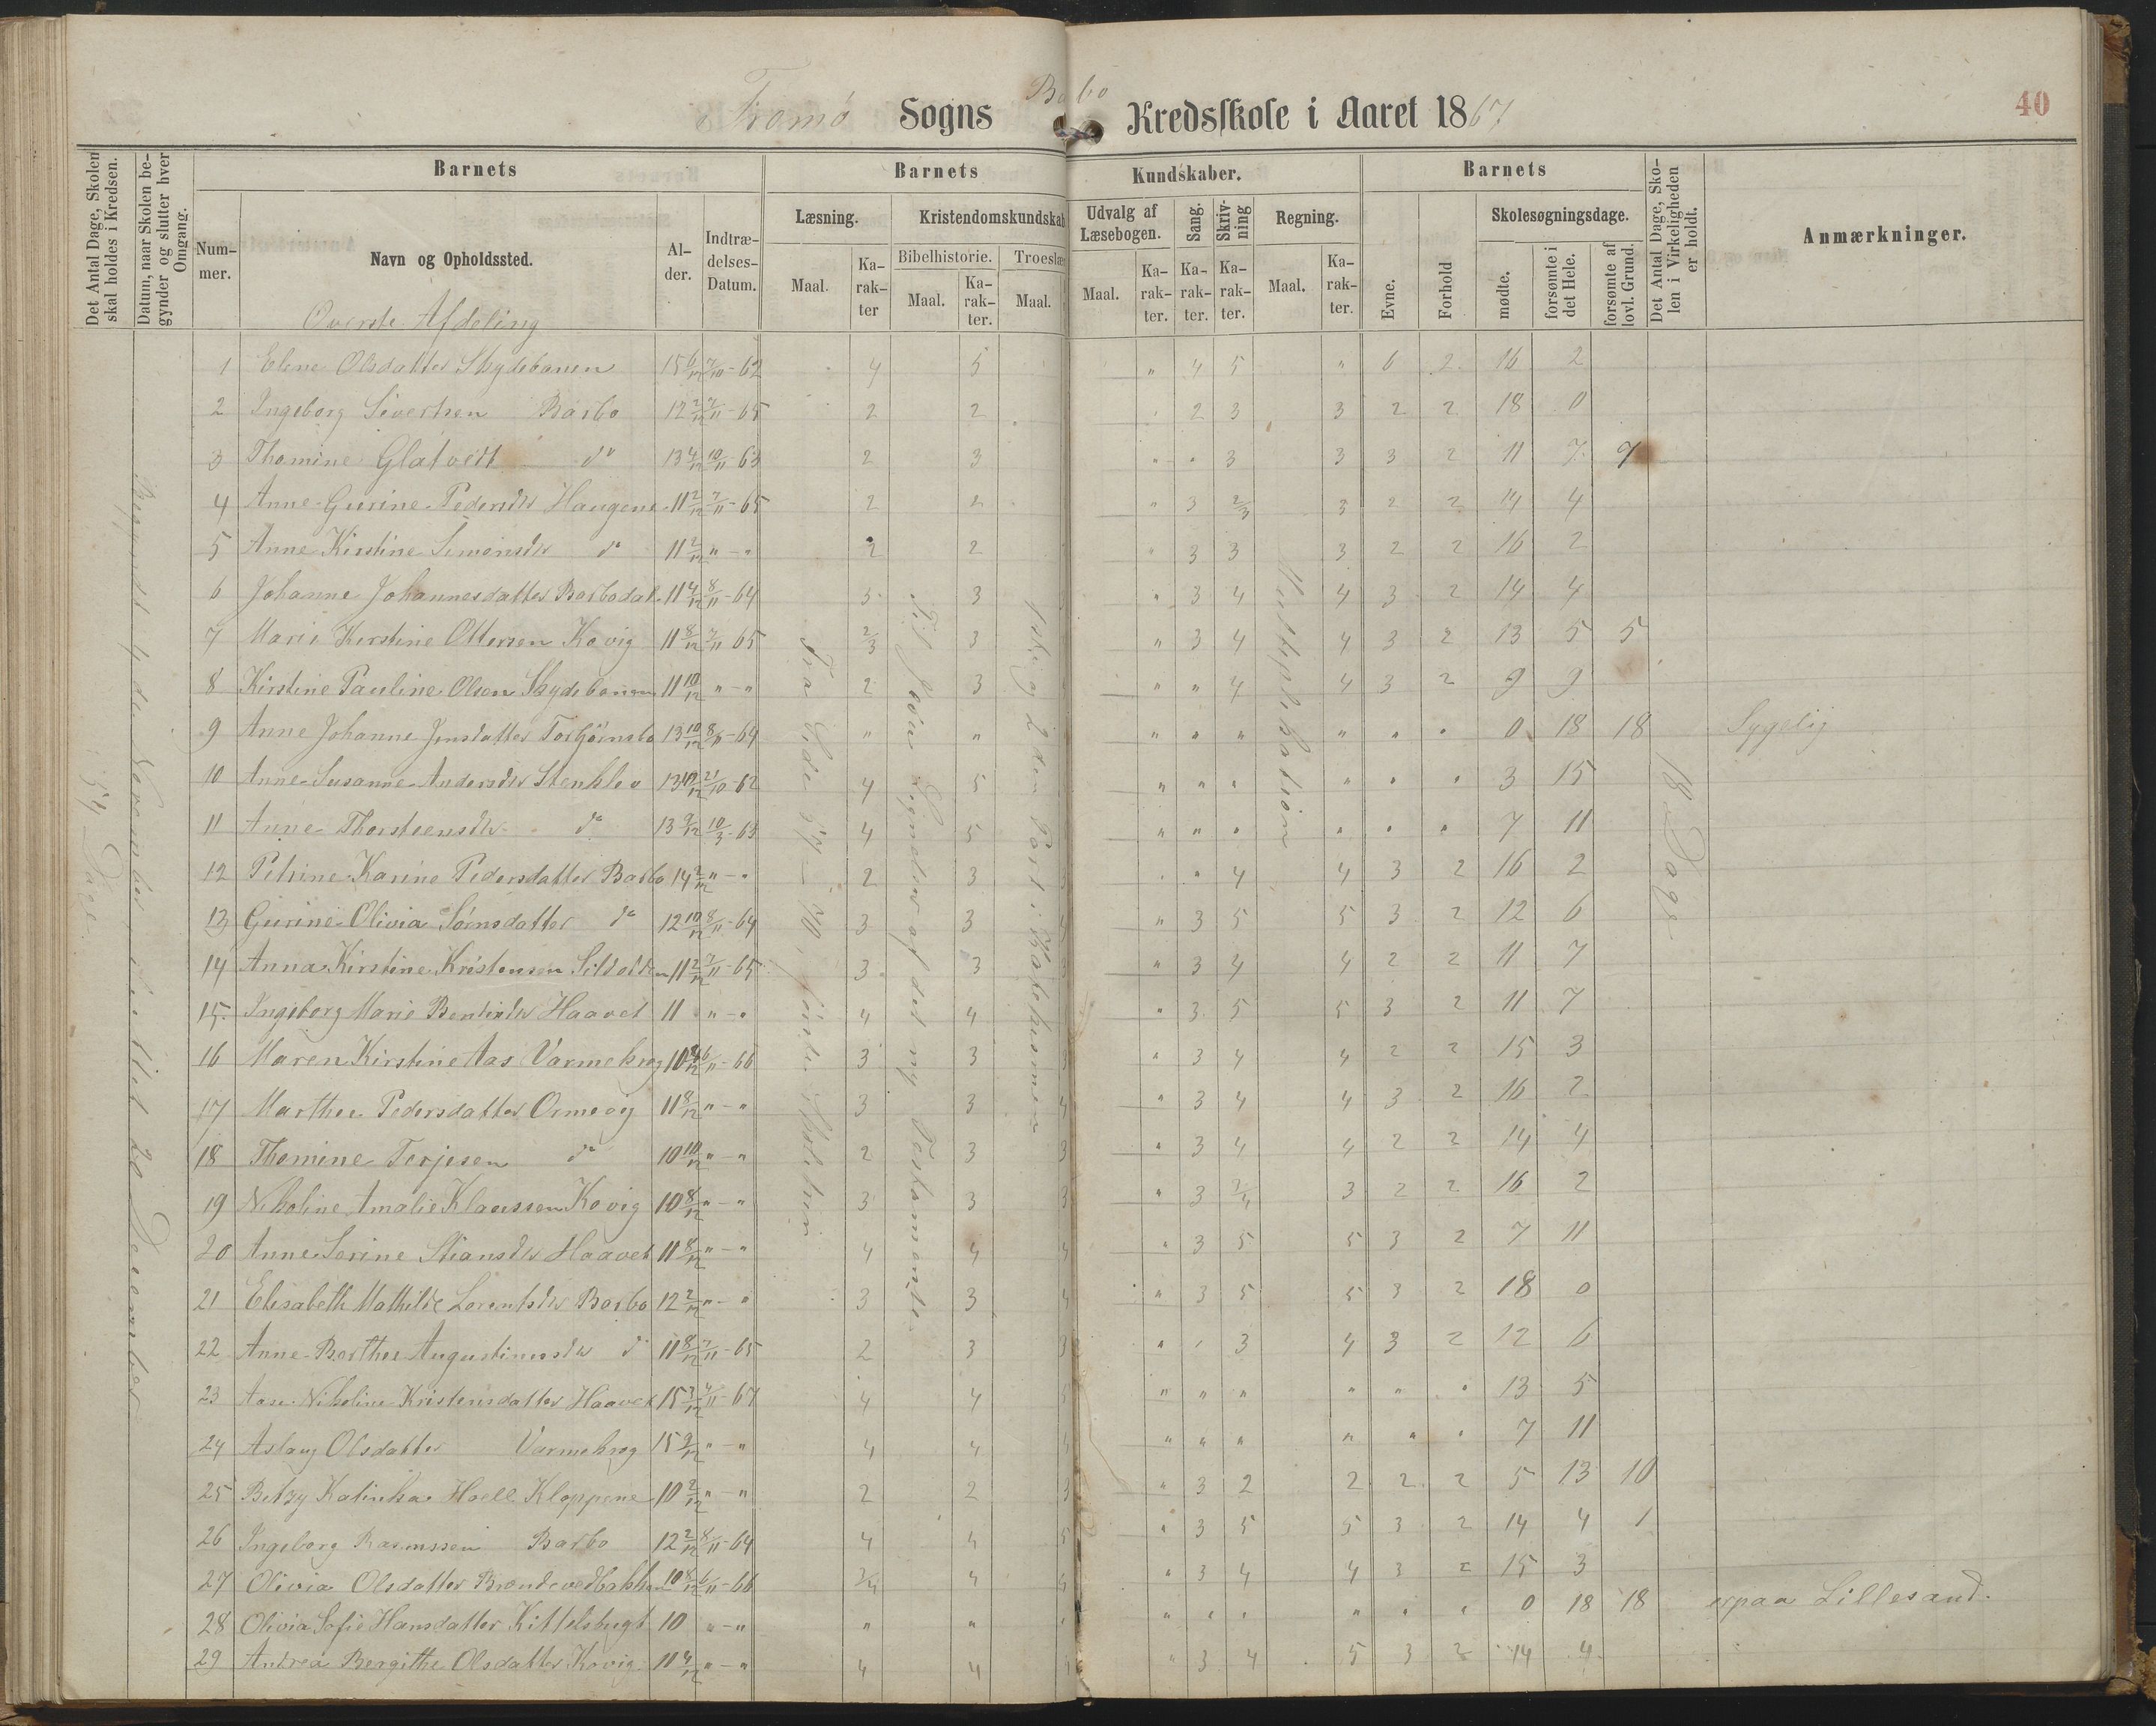 Tromø Sogns Barbo Kredsskole i Aaret 1867
40
Det Antal Dage, Skolen skal holdes i Kredsen.
Datum, naar Skolen begynder og slutter hver Omgang.
Barnets
Barnets
Kundskaber.
Barnets
Det Antal Dage, Skolen i Virkeligheden er holdt.
Anmærkninger.
Nummer.
Navn og Opholdssted.
Alder.
Indtrædelses-Datum.
Læsning.
Kristendomskundskab
Udvalg af Læsebogen.
Sang.
Skrivning
Regning.
Evne.
Forhold
Skolesøgningsdage.
Bibelhistorie.
Troeslær
Maal.
Karakter
Maal.
Karakter.
Maal.
Maal.
Karakter.
Karakter.
Karakter.
Maal.
Karakter.
mødte.
forsømte i det Hele.
forsømte af lovl. Grund.
Øverste Afdeling
54 Dage.
Begyndt 4de November, sluttet 20 December
Fra Side 54 – 90, første Skoletrin
Til Jesu Lignelser af det ny Testamente
1ste og 2den Part i Katekismen
Multiplikation
18 Dage
1 Elene Olsdatter Skydebanen 15 6/12 7/10-62 4 5 " 4 5 " 6 2 16 2
2 Ingeborg Sivertsen Barbo 12 2/12 7/11-65 2 2 2 3 3 2 2 18 0
3 Thomine Glatvedt do 13 4/12 10/11-63 2 3 " " 3 3 3 2 11 7 7
4 Anne Gurine Pedersdtr Haugene 11 2/12 7/11-65 2 2 " 3 2/3 3 2 2 14 4
5 Anne Kirstine Simonsdtr do 11 2/12 "-" 2 2 " 3 3 3 2 2 16 2
6 Johanne Johannesdatter Barbodal 11 4/12 8/11-64 3 3 " 3 4 4 3 2 14 4
7 Marie Kirstine Ottersen Kovig 11 8/12 7/11 65 2/3 3 " 3 4 4 3 2 13 5 5
8 Kirstine Pauline Olsen Skydebanen 11 10/12 "-" 2 3 " " 4 4 3 2 9 9
9 Anne Johanne Jensdatter Torbjörnsbo 13 10/12 8/11-64 " " " " " " " " 0 18 18 Sygelig
10 Anne Susanne Andersdtr Stenklev 13 10/12 21/10-62 4 5 " " " " " " 3 15
11 Anne Thorstensdtr do 13 9/12 10/3-63 4 5 " " " " " " 7 11
12 Petrine Karine Pedersdatter Barbo 14 2/12 "-" 2 3 " 4 4 3 2 16 2
13 Gurine Olivia Sörnsdatter do 12 10/12 8/11-64 3 3 " 3 5 5 3 2 12 6
14 Anna Kirstine Kristensen 11 2/12 7/11-65 3 3 " 3 4 4 2 2 11 7
15 Ingeborg Marie Haavet 11 "-" 4 4 " 3 5 5 3 2 11 7
16 Maren Kirstine Aas Varmekrog 10 6/11-66 3 3 " 3 4 4 2 2 15 3
17 Marthee Pedersdatter Ormevig 11 8/12 "-" 3 3 4 " 3 4 4 3 2 16 2
18 Thomine Terjesen do 10 10/12 "-" 2 3 3 " 3 4 4 2 2 14 4
19 Nikoline Amalie Klaussen Kovig 10 8/12 "-" 3 3 3 " 3 3/4 3 2 2 16 2
20 Anne Sorine Stiansdtr Haavet 11 8/12 "-" 4 4 4 " 3 5 5 3 2 7 11
21 Elisabeth Mathilde Lorentsdtr Barbo 12 2/12 "-" 3 3 4 " 3 5 5 3 2 18 0
22 Anne Berthee Augustinusdtr do 11 8/12 7/11-65 2 3 3 " 3 4 3 2 12 6
23 Aase Nikoline Kristensdatter Haavet 15 4/11-67 4 4 5 " " " " " " 13 5
24 Aslaug Olsdatter Varmekrog 15 9/12 "-" 4 4 4 " " " " " " 7 11
25 Betzy Katinka Hoell Kloppene 10 2/12 "-" 2 2 3 " 3 2 2 2 2 5 13 10
26 Ingeborg Rasmussen Barbo 12 2/12 8/11-64 4 4 5 " 3 5 5 3 2 14 4 1
27 Olivia Olsdatter 10 8/12 6/11-66 3/4 4 4 " 3 4 4 3 2 15 3
28 Olivia Sofie Hansdatter Kittelsbugt 10 "-" " " " " " " " " 0 18 18 er paa Lillesand.
29 Andrea Bergithe Olsdatter Kovig 11 4/12 "-" 4 4 4 " 3 4 5 3 2 14 4